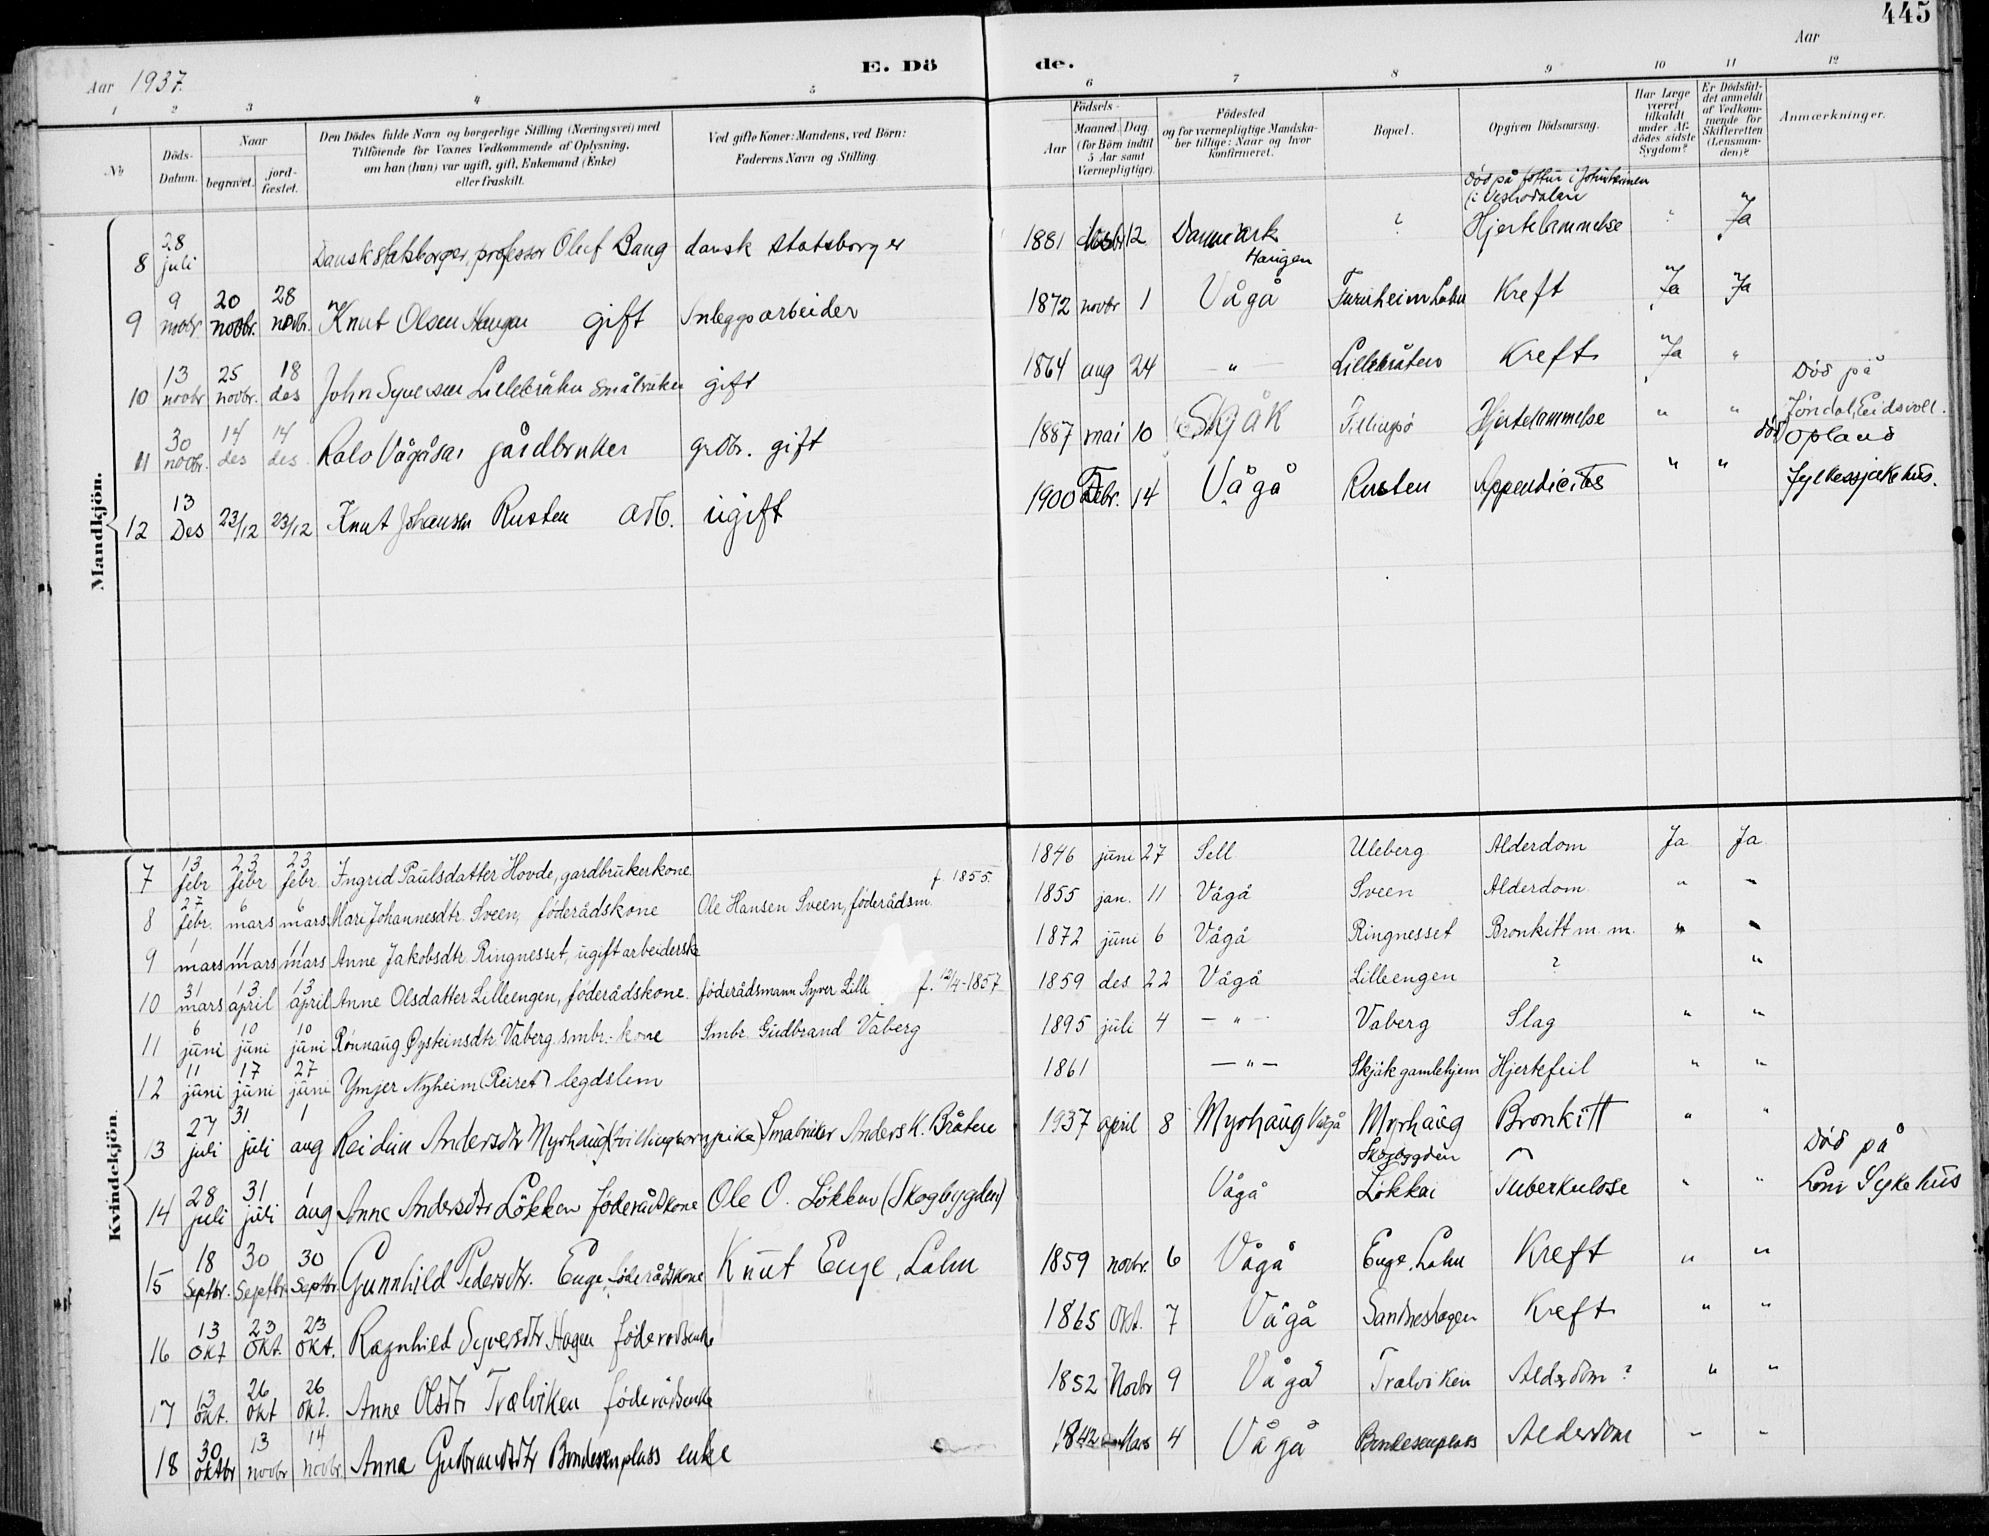 445
Aar 1937.
E. Dö de.
Aar
1 2 3 4 5 6 7 8 9 10 11 12
No
Döds-Datum.
Naar
begravet.
jord-fæstet.
Den Dödes fulde Navn og borgerlige Stilling (Næringsvei) med
Tilföiende for Voxnes Vedkommende af Oplysning,
om han (hun) var ugift, gift, Enkemand (Enke)
eller fraskilt.
Ved gifte Koner: Mandens, ved Börn:
Faderens Navn og Stilling.
Födsels-
Aar
Maaned. Dag
(for Börn indtil
5 Aar samt
Værnepligtige)
Födested
og for værnepligtige Mandska-
ber tillige: Naar og hvor
konfirmeret.
Bopæl.
Opgiven Dödsaarsag.
Har Læge
været
tilkaldt
under Af-
dödes sidste
Sygdom?
Er Dödsfal-
det anmeldt
af Vedkom-
mende for
Skifteretten
(Lensman-
den)?
Anmærkninger.
Mandkjön.
8 28 juli Dansk statsborger, professor Oluf Bang dansk statsborger 1881 12 Danmark ? død på fottur i Hjertelammelse " Ja
9 9 novbr. 20 novbr. 28 novbr. Knut Olsen Haugen gift Anleggsarbeider 1872 novbr 1 Haugen Vågå Furuheim Lalm Kreft Ja Ja
10 13 novbr 25 novbr. 18 des John Syversen Lillebråten småbruker gift 1864 aug 24 — " — Lillebråten Kreft Ja "
11 30 novbr. 14 des 14 des Vågåsar gårdbruker grdbr. gift 1887 mai 10 Skjåk Hjertelammelse " " Død på Jøndal, Eidsvoll.
12 13 Des 23/12 23/12 Knut Johansen Rusten arb. ugift 1900 Febr. 14 Vågå Rusten Appendicites " " død Opland Fylkessjukehus.
Kvindekjön.
7 13 febr 23 febr 23 febr. Ingrid Paulsdatter Hovde, gardbrukerkone. 1846 juni 27 Sell Uleberg Alderdom Ja Ja
8 27 febr. 6 mars 6 mars Mari Johannesdtr. Sveen, föderådskone Ole Hansen Sveen, föderådsm. f. 1855. 1855 jan. 11 Vågå Sveen Alderdom " "
9 1 mars 11 mars 11 mars Anne Jakobsdtr. Ringnesset, ugift arbeiderske 1872 juni 6 Vågå Ringnesset Bronkitt m. m. " "
10 31 mars 13 april 13 april Anne Olsdatter Lilleengen, föderådskone. föderådsmann Syver Lille f. 12/4-1857 1859 des 22 Vågå Lilleengen ? "
11 6 juni 10 juni 10 juni Rönnaug Øysteinsdtr. Vaberg smbr.-kone Smbr. Gudbrand Vaberg 1895 juli 4 — " — Vaberg Slag " "
12 11 juni 17 juni 27 juni Ymjer Nyheim (Reiret) legdslem 1861 — " — Skjåk gamlehjem Hjertefeil " "
13 27 juli 31 juli 1 aug Reidun Andersdtr Myrhaug (tvillingbarn pike) Småbruker Anders K. Bråten 1937 april 8 Myrhaug Vågå Myrhaug Bronkitt " "
14 28 juli 31 juli 1 aug Anne Andersdtr Løkken føderådskone Ole O. Løkken (Skogbygden) Vågå Skogbygden Løkkai Tuberkulose " " Død på Lom Sykehus
15 18 Septbr. 30 Septbr. 30 Septbr. Gunnhild Pedersdtr. Enge, føderådskone Knut Enge, Lalm 1859 novbr. 6 Vågå Enge, Lalm Kreft " "
16 13 Okt 23 Okt. 23 Okt. Ragnhild Syversdtr Hagen føderådsenke 1865 Okt. 7 Vågå Sandneshagen Kreft " "
17 13 okt. 26 okt 26 okt. Anne Olsdtr Trælviken føderådsenke 1852 Novbr 9 Vågå Trælviken Alderdom? " "
18 30 oktbr 13 novbr 14 novbr Anna Gudbrandsdtr Bondesenplass enke 1842 Mars 4 Vågå Bondesenplass Alderdom " "